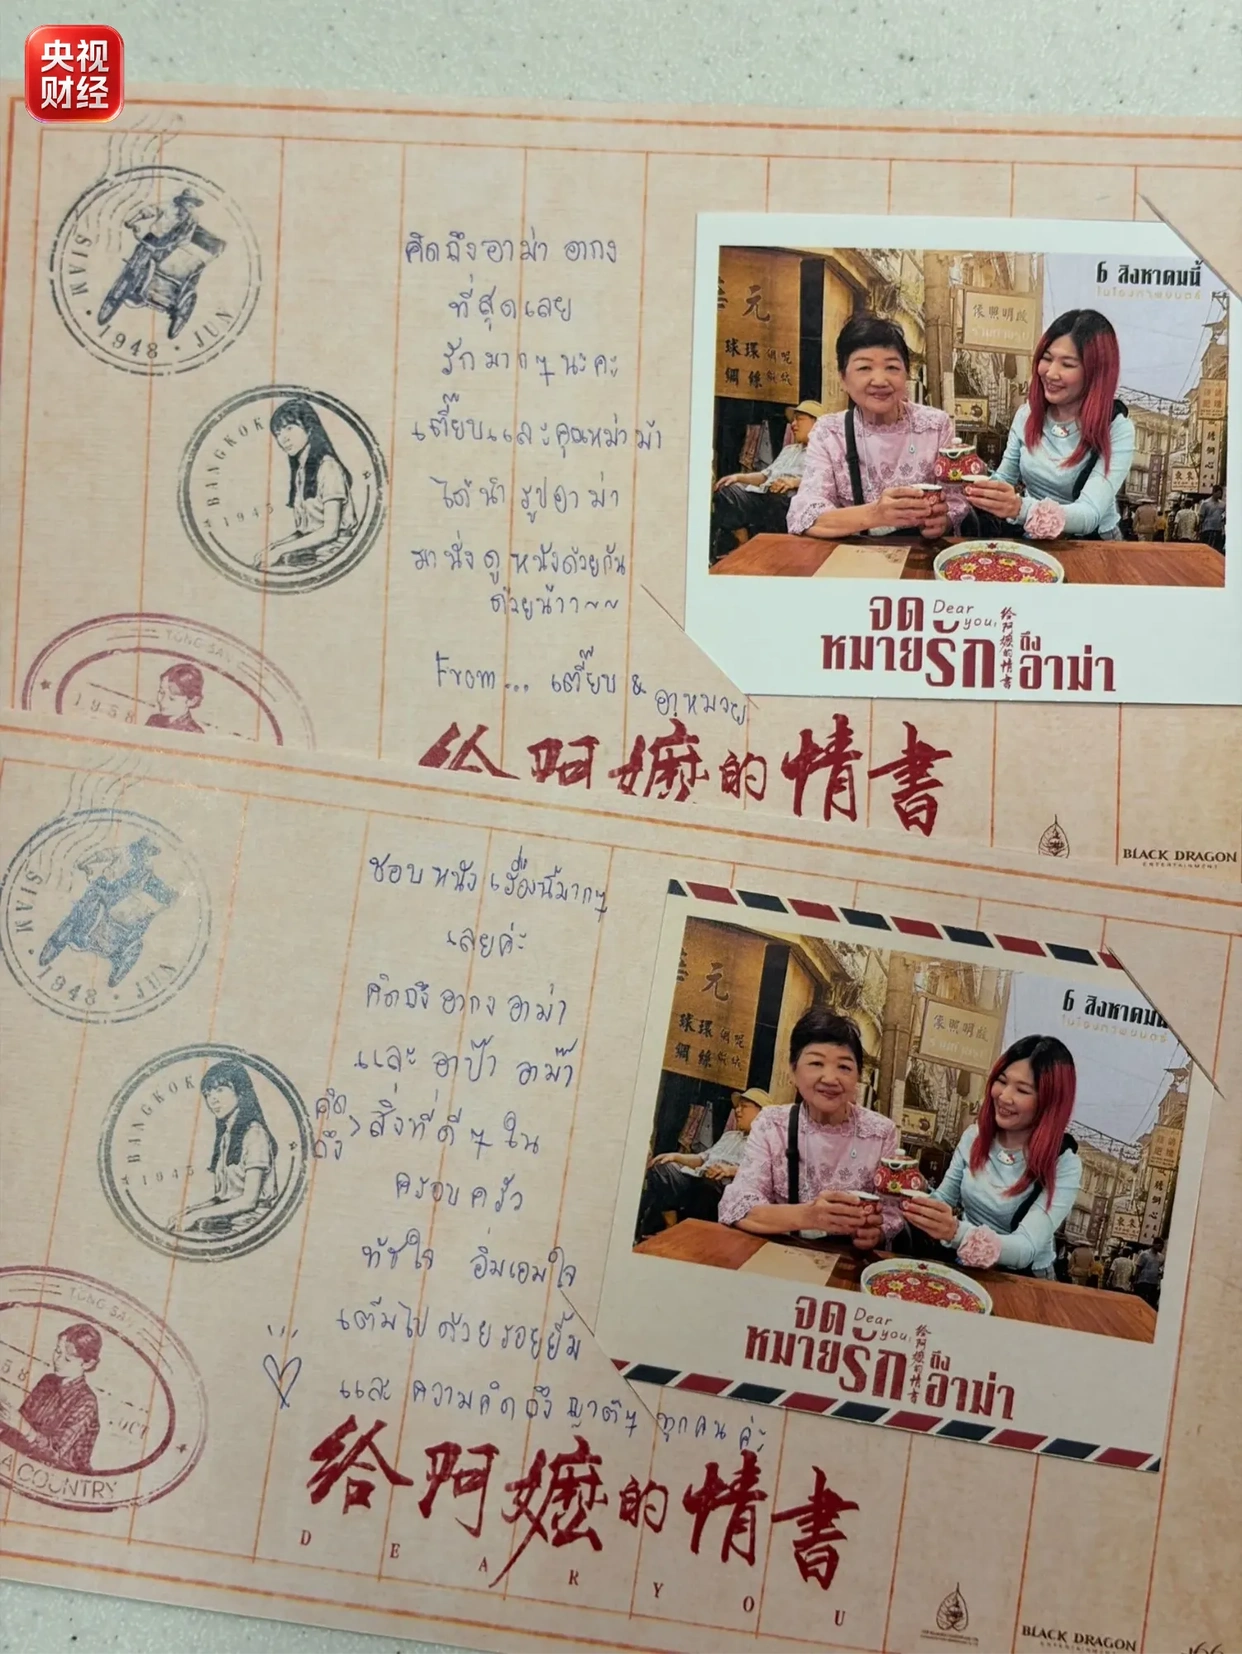 央视
财经
SIAM
1948 · JUN
BANGKOK
1945
TONG SAN
1958
คิดถึงอาม่า อากง
ที่สุดเลย
รักมากๆนะคะ
เตี๊ยบและคุณหม่าม้า
ได้นำรูปอาม่า
มานั่งดูหนังด้วยกัน
ด้วยน้าา~~
From... เตี๊ยบ & อาหมวย
6 สิงหาคมนี้
ในโรงภาพยนตร์
元
球環
綢緞
จด
หมายรักถึงอาม่า
Dear you,
给阿嬷的情书
给阿嬷的情書
BLACK DRAGON
ENTERTAINMENT
SIAM
1948 · JUN
BANGKOK
1945
TONG SAN
58
OCT
A COUNTRY
ชอบหนังเรื่องนี้มากๆ
เลยค่ะ
คิดถึงอากง อาม่า
และ อาป๊า อาม๊า
คิดถึง > สิ่งที่ดีๆ ใน
ครอบครัว
ทัชใจ อิ่มเอมใจ
เต็มไปด้วยรอยยิ้ม
และ ความคิดถึง ญาติๆ ทุกคน ค่ะ
6 สิงหาคมนี้
ในโรงภาพยนตร์
元
球環
綢緞
จด
หมายรักถึงอาม่า
Dear you,
给阿嬷的情书
给阿嬷的情書
DEAR YOU
BLACK DRAGON
ENTERTAINMENT